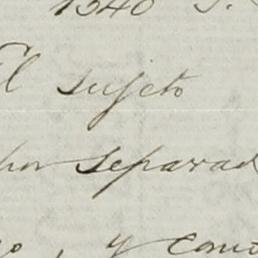 1340
El sujeto
por separad
, y como